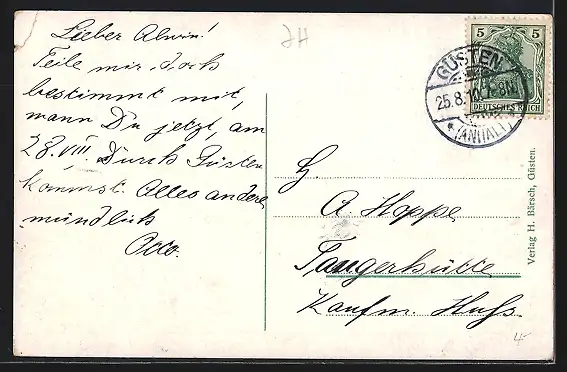 Lieber Alwin!
Teile mir doch
bestimmt mit,
wann Du jetzt, am
28.VIII. Durch Güsten
kommst. Alles andere
mündlich
Otto.
JH
5 5
DEUTSCHES REICH
GÜSTEN
25.8.10.7-8N.
*(ANHALT)
H.
A. Hoppe
Tangerhütte
Kaufm. Hufs.
Verlag H. Bärsch, Güsten.